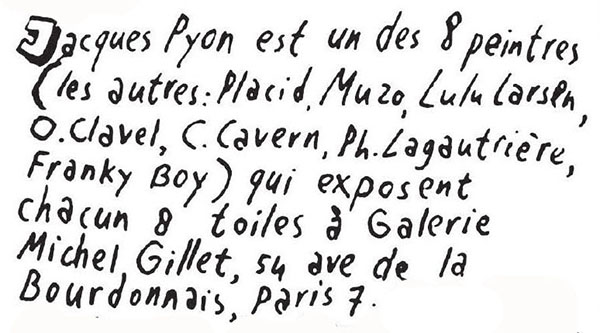 Jacques Pyon est un des 8 peintres
(les autres: Placid, Muzo, Lulu Larsen,
O. Clavel, C. Cavern, Ph. Lagautrière,
Franky Boy) qui exposent
chacun 8 toiles à Galerie
Michel Gillet, 54 ave de la
Bourdonnais, Paris 7.